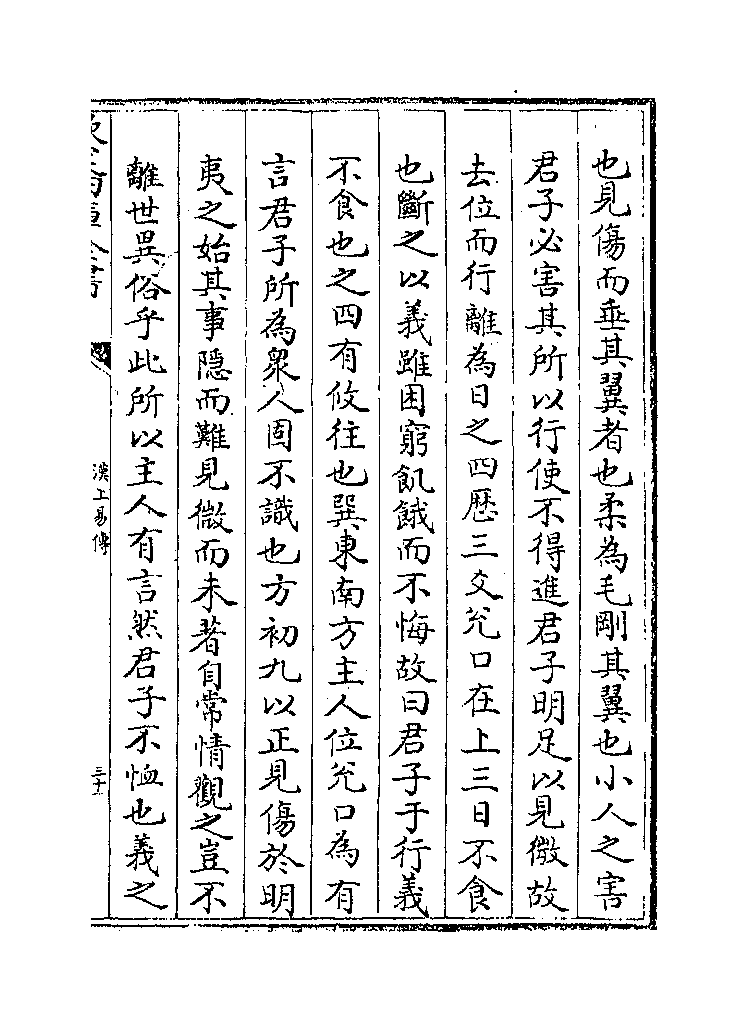 也見傷而垂其翼者也柔為毛剛其翼也小人之害
君子必害其所以行使不得進君子明足以見微故
去位而行離為日之四歴三爻兊口在上三日不食
也斷之以義雖困窮飢餓而不悔故曰君子于行義
不食也之四有攸往也巽東南方主人位兊口為有
言君子所為衆人固不識也方初九以正見傷於明
夷之始其事隠而難見微而未著自常情觀之豈不
離世異俗乎此所以主人有言然君子不恤也義之
漢上易傳